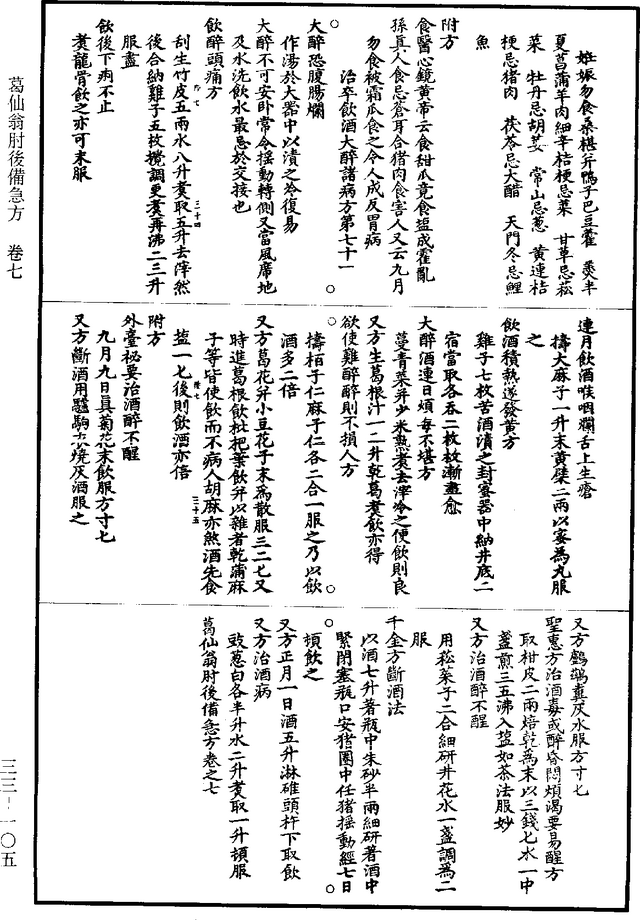 葛仙翁肘後備急方 卷七
三三-一〇五
妊娠勿食桑椹并鴨子巴豆藿 羹半
夏菖蒲羊肉細辛桔梗忌菜 甘草忌菘
菜 牡丹忌胡荽 常山忌葱 黄連桔
梗忌猪肉 茯苓忌大醋 天門冬忌鯉
魚
附方
食醫心鏡黄帝云食甜瓜竟食盐成霍亂
孫真人食忌蒼耳合猪肉食害人又云九月
勿食被霜瓜食之令人成反胃病
治卒飲酒大醉諸病方第七十一
大醉恐腹腸爛
作湯於大器中以漬之冷復易
大醉不可安卧常令摇動轉側又當風席地
及水洗飲水最忌於交接也
飲醉頭痛方
刮生竹皮五兩水八升煑取五升去滓然
三十四
後合納雞子五枚攪調更煑再沸二三升
服盡
飲後下痢不止
煑龍骨飲之亦可末服
連月飲酒喉咽爛舌上生瘡
擣大麻子一升末黄蘗二兩以蜜為丸服
之
飲酒積熱遂發黄方
雞子七枚苦酒漬之封蜜器中納井底二
宿當取各吞二枚枚漸盡愈
大醉酒連日煩毒不堪方
蔓青菜并少米熟煑去滓冷之便飲則良
又方生葛根汁一二升乾葛煑飲亦得
欲使難醉醉則不損人方
擣栢子仁麻子仁各二合一服之乃以飲
酒多二倍
又方葛花并小豆花子末為散服三二匕又
時進葛根飲枇杷葉飲并以雜者乾蒲麻
子等皆使飲而不病人胡麻亦煞酒先食
三十五
盐一匕後則飲酒亦倍
附方
外臺秘要治酒醉不醒
九月九日真菊花末飲服方寸匕
又方斷酒用驢駒衣燒灰酒服之
又方鸕鷀糞灰水服方寸匕
聖惠方治酒毒或醉昏悶煩渴要易醒方
取柑皮二兩焙乾為末以三錢匕水一中
盞煎三五沸入盐如茶法服妙
又方治酒醉不醒
用菘菜子二合細研井花水一盞調為二
服
千金方斷酒法
以酒七升著瓶中朱砂半兩細研著酒中
緊閉塞瓶口安猪圈中任猪摇動經七日
頓飲之
又方正月一日酒五升淋碓頭杵下取飲
又方治酒病
豉葱白各半升水二升煑取一升頓服
葛仙翁肘後備急方卷之七